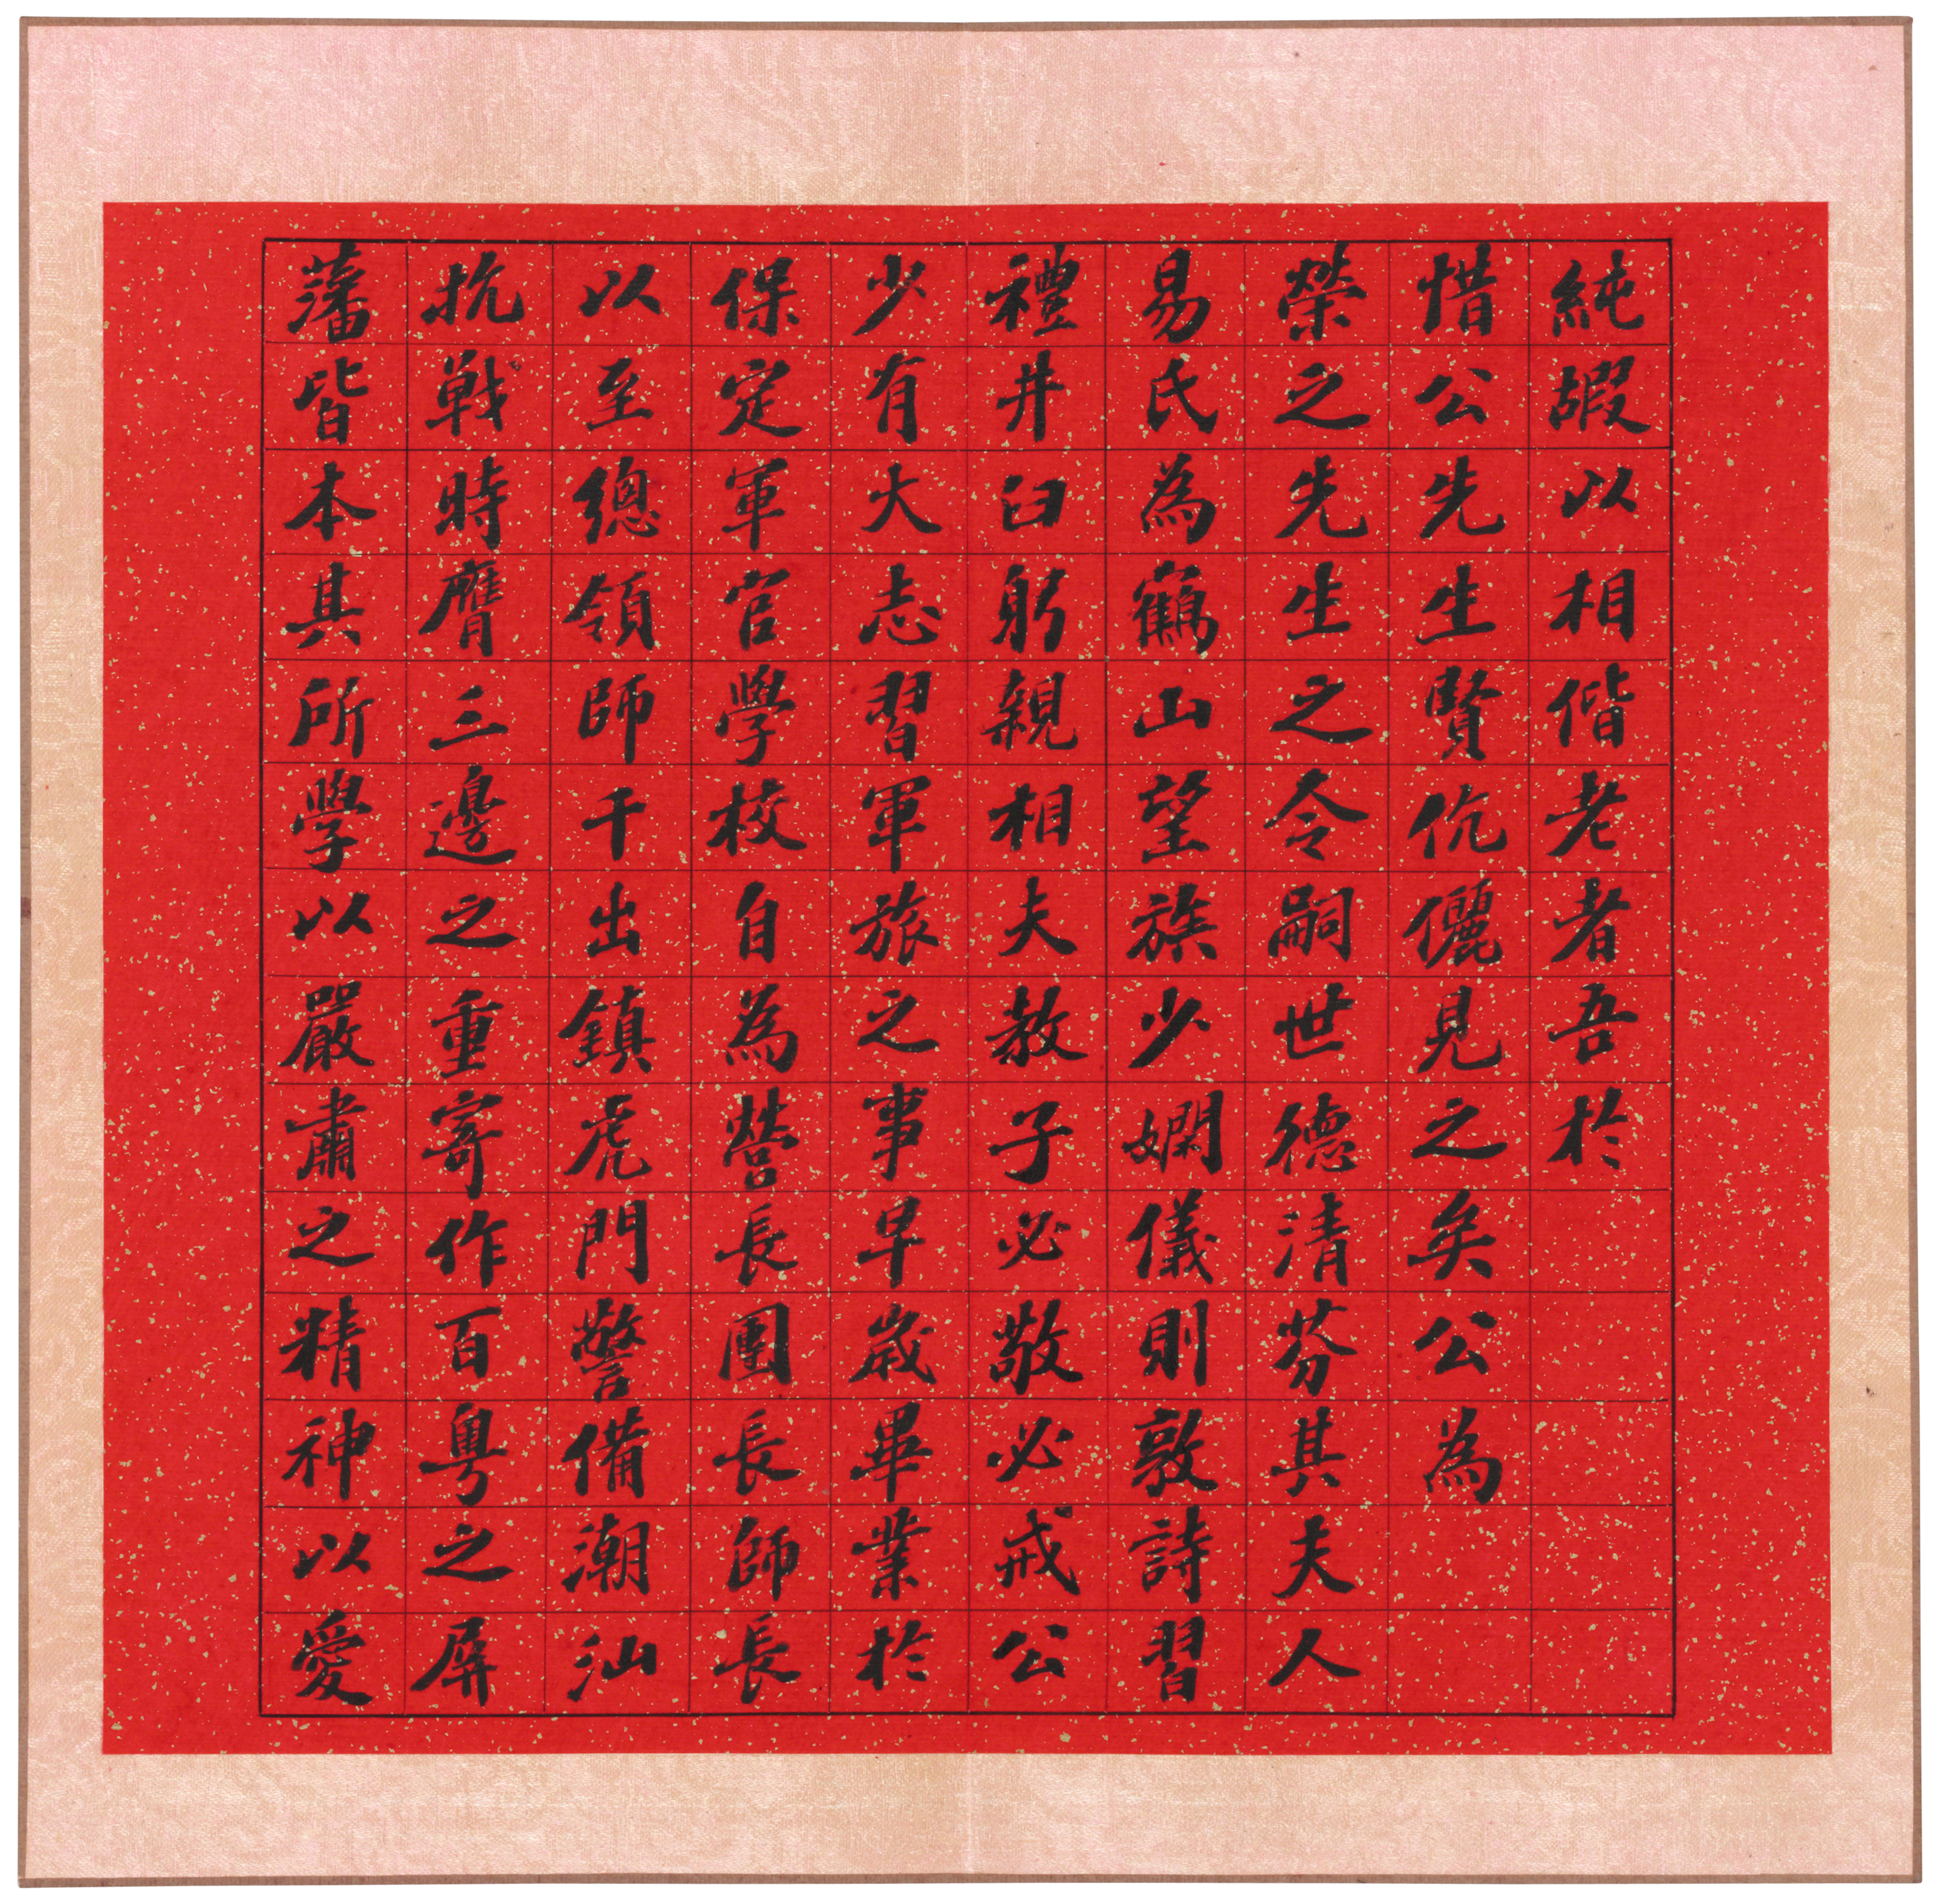 純嘏以相偕老者吾於
惜公先生賢伉儷見之矣公為
榮之先生之令嗣世德清芬其夫人
易氏為鶴山望族少嫻儀則敦詩習
禮井臼躬親相夫教子必敬必戒公
少有大志習軍旅之事早歲畢業於
保定軍官學校自為營長團長師長
以至總領師干出鎮虎門警備潮汕
抗戰時膺三邊之重寄作百粵之屏
藩皆本其所學以嚴肅之精神以愛